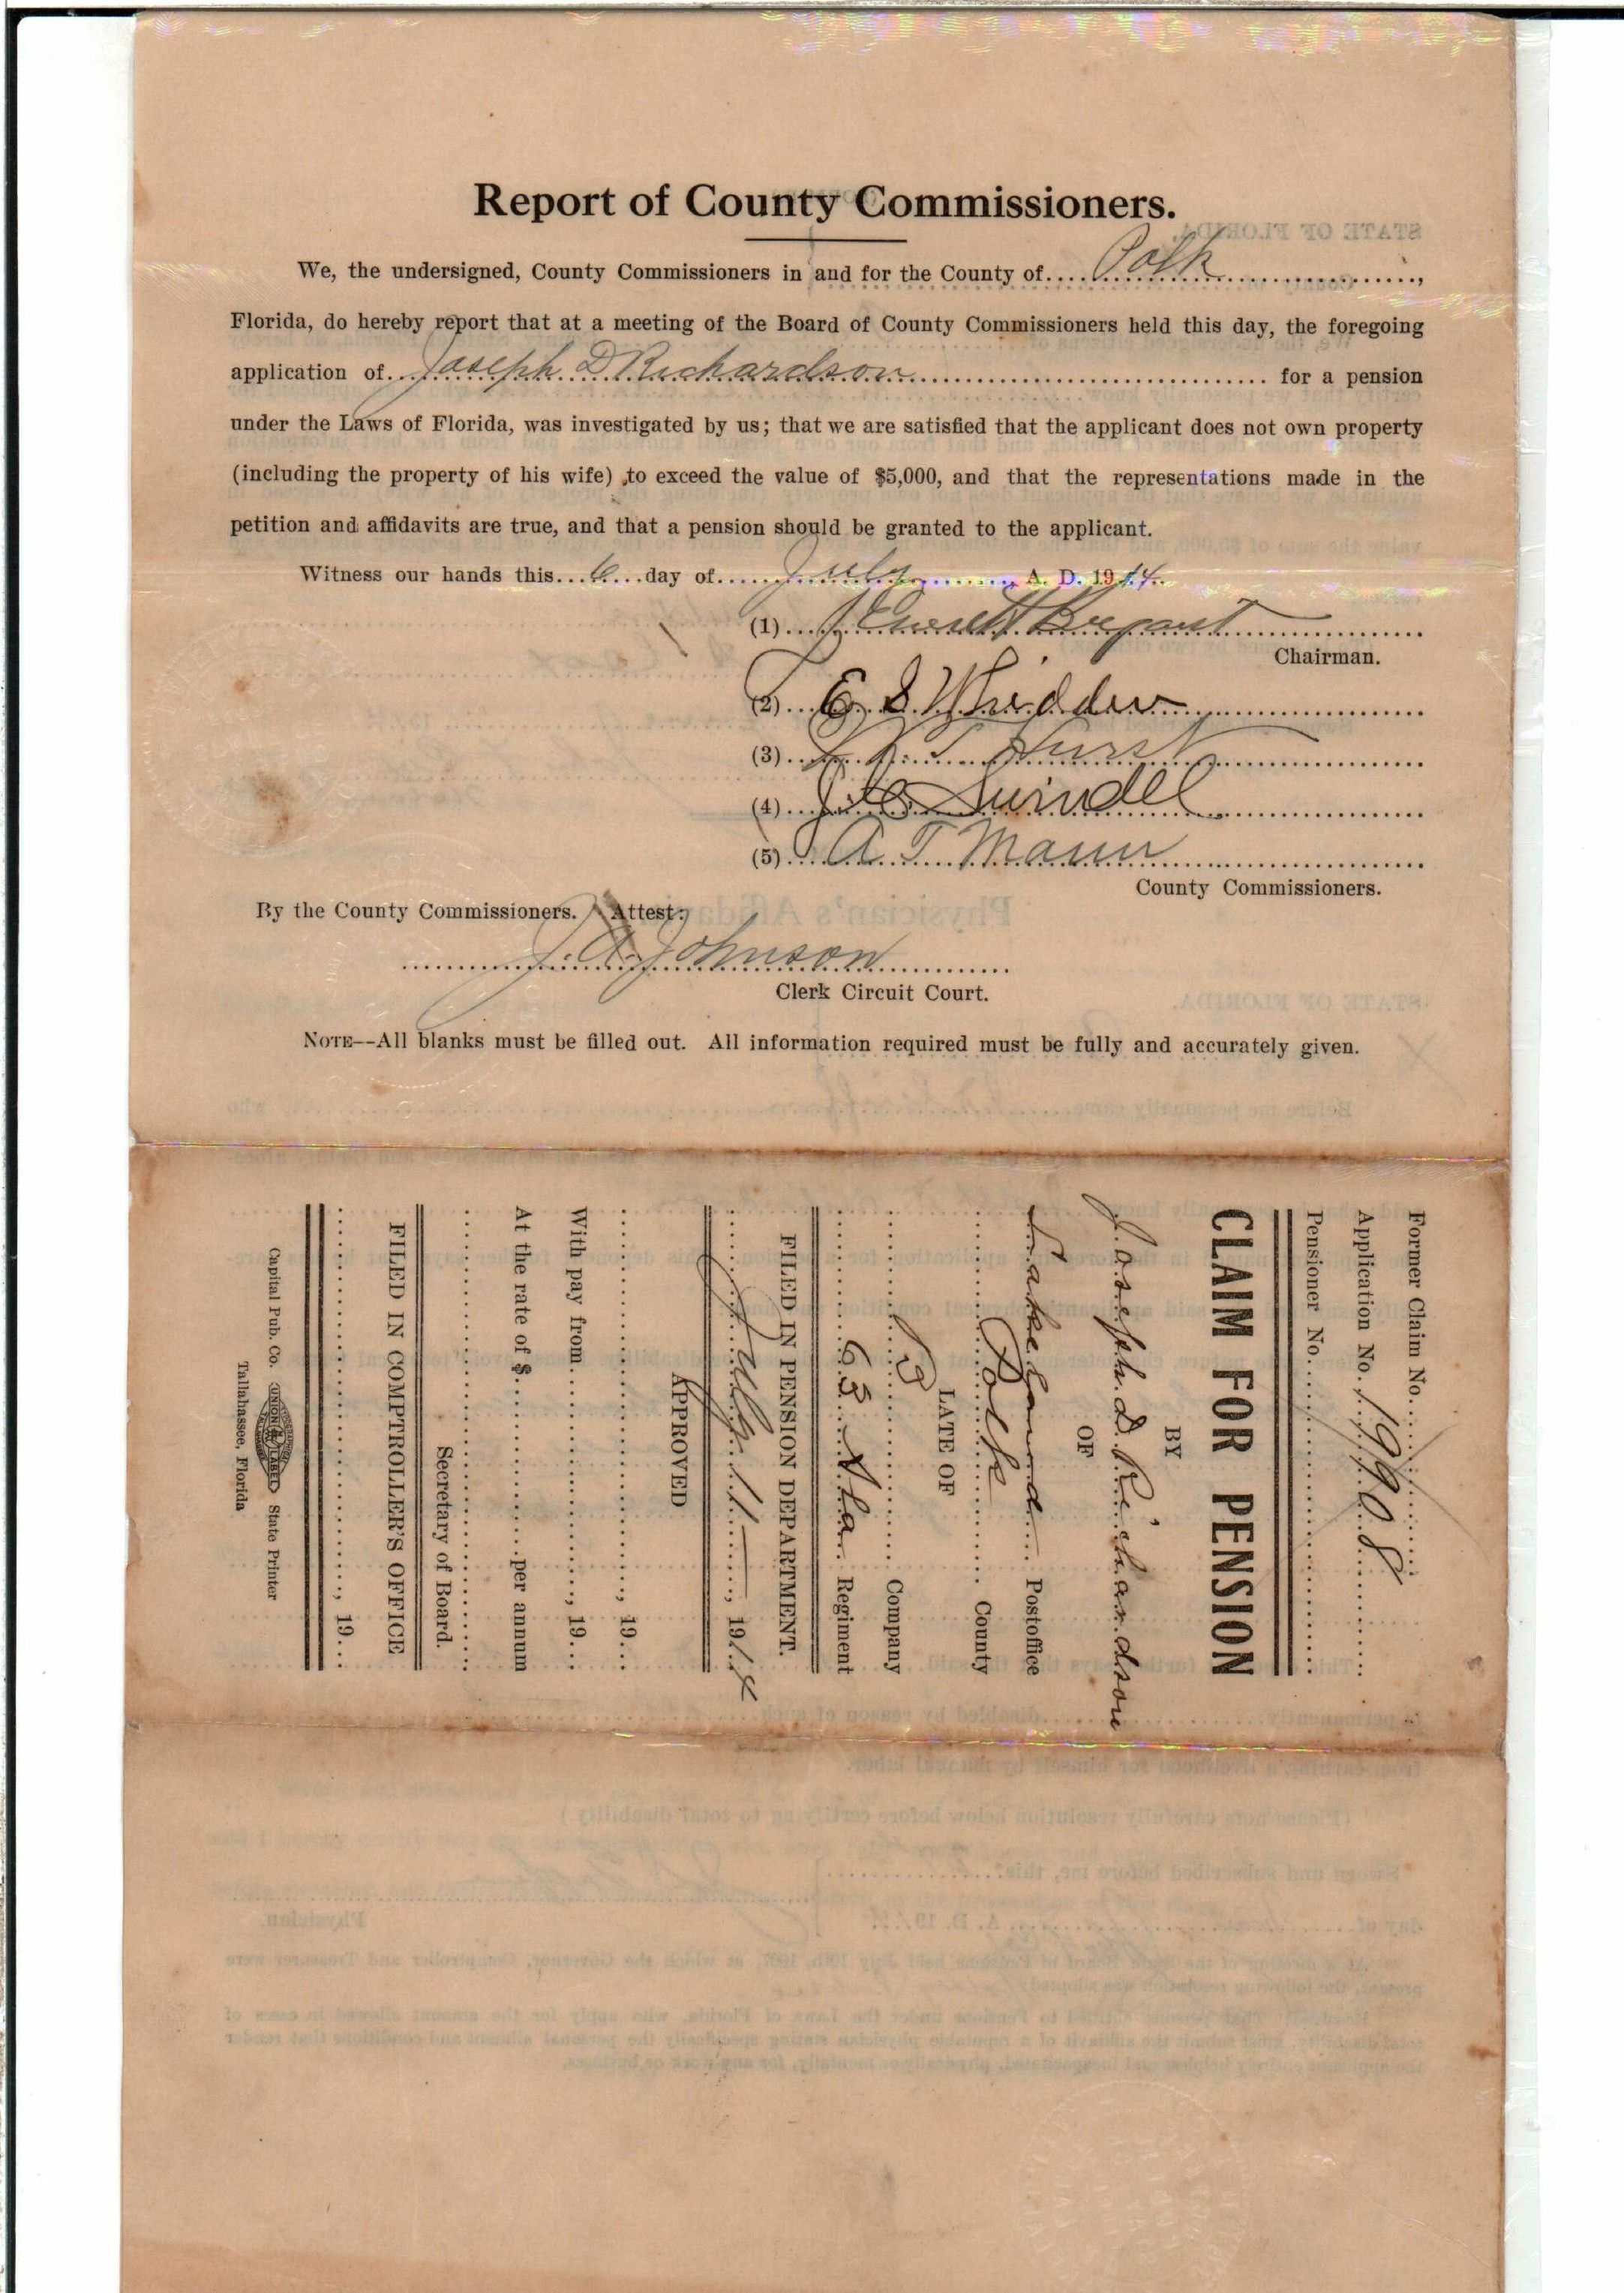 Report of County Commissioners.
We, the undersigned, County Commissioners in and for the County of.... Polk ...................,
Florida, do hereby report that at a meeting of the Board of County Commissioners held this day, the foregoing
application of... Joseph D Richardson ................................. for a pension
under the Laws of Florida, was investigated by us; that we are satisfied that the applicant does not own property
(including the property of his wife) to exceed the value of $5,000, and that the representations made in the
petition and affidavits are true, and that a pension should be granted to the applicant.
Witness our hands this... 6 ...day of...... July .........., A. D. 1914.
(1)... J Everett Bryant ...................
Chairman.
(2)... E S Whidden ...................
(3)... T Hurst ...................
(4)... Swindel ...................
(5)... A. T. Mann ...................
County Commissioners.
By the County Commissioners. Attest:
J. A. Johnson
Clerk Circuit Court.
NOTE--All blanks must be filled out. All information required must be fully and accurately given.
Former Claim No...................
Application No. 19908
Pensioner No...................
CLAIM FOR PENSION
BY
Joseph D Richardson
OF
Lakeland .... Postoffice
Polk .... County
LATE OF
B .... Company
63 .... Regiment
FILED IN PENSION DEPARTMENT.
July 11 ...., 1914
APPROVED
..................., 19...
With pay from..................., 19...
At the rate of $...................per annum
Secretary of Board.
FILED IN COMPTROLLER'S OFFICE
..................., 19...
Capital Pub. Co. UNION LABEL State Printer
Tallahassee, Florida